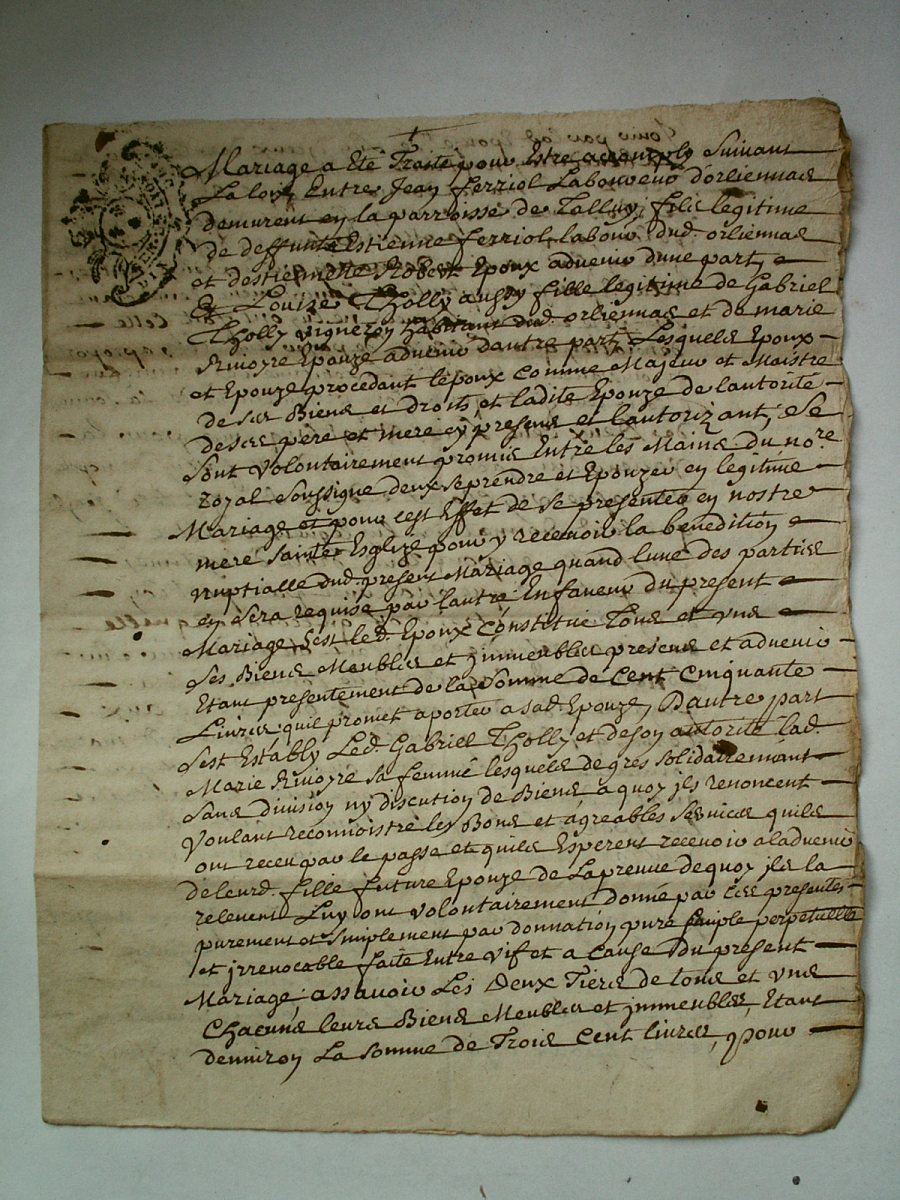 Mariage a Eté Traité pour Estre accomply Suivant
La loix Entre Jean Ferriol Laboureur d'orliennas
demurent en la parroisse de Talluy, fils legitime
de deffunt Estienne ferriol labour dud. orliennas
et d'estiennette Robert Epoux advenir dune part,
Et Louise Tholly aussy fille legitime de Gabriel
Tholly vigneron habitant dud. orliennas et de marie
Rivoyre Epouze advenir dautre part, Lesquels Epoux
et Epouze procedant lepoux comme Majeur et Maistre
de ses Biens et droits, et ladite Epouze de lautorité
de ses pere et mere cy presens et lautorizant, Se
sont volontairement promis Entre les Mains du nore
royal soussigne deux se prendre et Epouzer en legitime
Mariage et pour cest Effet de se presenter en nostre
mere sainte Esglize pour y recevoir la benedition
nuptialle dud. present Mariage quand lune des parties
en sera requise par lautre Enfaveur du present
Mariage s'est led. Epoux Constitué Tous et uns
ses Biens Meubles et jmmeubles presens et advenir
Etant presentement de la Somme de Cent Cinquante
Livres quil promet aporter a sad. Epouze, Dautre part
s'est Estably Led. Gabriel Tholly et de son autorité lad.
Marie Rivoyre sa femme lesquels de gres solidairemant
sans division ny discution de Biens a quoy jls renoncent
Voulant reconnoistre les Bons et agreables services quils
ont receu par le passe et quils Esperent recevoir aladvenir
de leurd. fille future Epouze de La preuve dequoy jls la
relevent Luy ont volontairement donné par ces presentes
purement et simplement par donnation pure simple perpetuelle
et jrrevocable faite Entre vif et a Cause Du present
Mariage, assavoir Les Deux Tiers de tous et uns
Chacuns leurs Biens Meubles et jmmeubles, Etant
denviron La somme de Trois Cent livres, pour